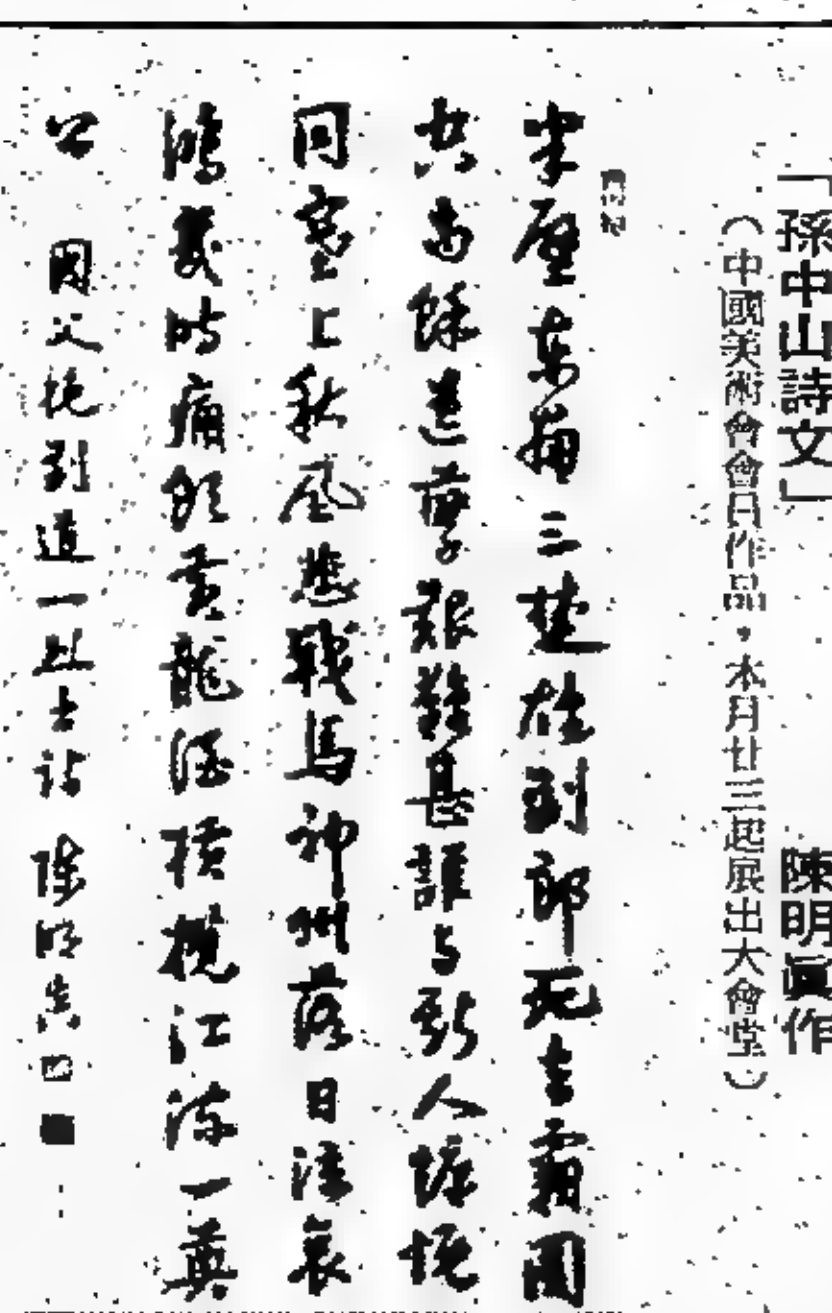 「孫中山詩文」 陳明眞作
（中國美術會會員作品，本月廿三起展出大會堂）
半壁東南三楚雄劉郎死去霸圖
空尚餘遺孽艱難甚誰與斯人慷慨
同塞上秋風悲戰馬神州落日泣哀
鴻幾時痛飲黃龍酒橫攬江流一奠
公 國父挽劉道一烈士詩 陳明真